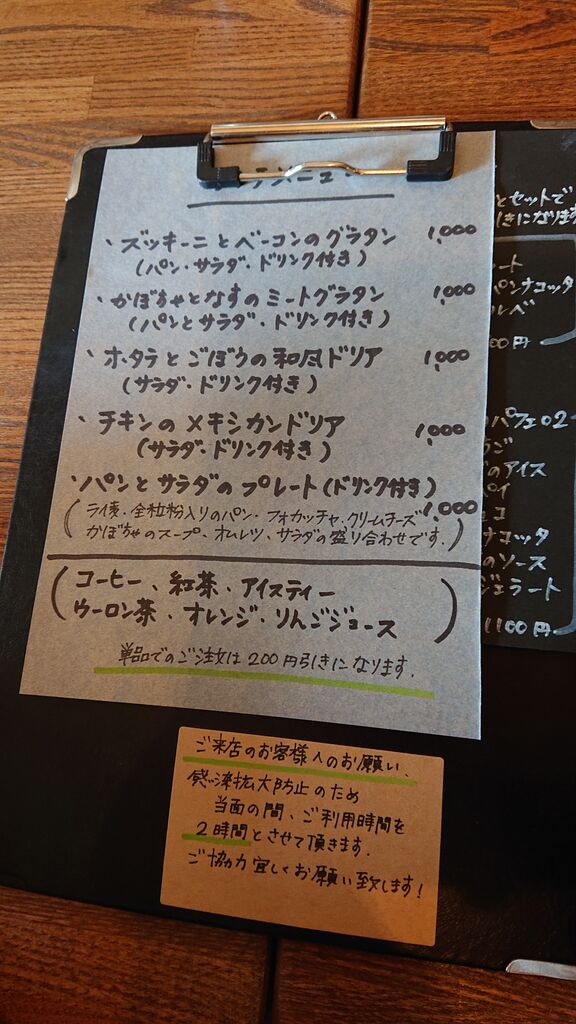 メニュー
・ズッキーニとベーコンのグラタン 1,000
(パン・サラダ・ドリンク付き)
・かぼちゃとなすのミートグラタン 1,000
(パンとサラダ・ドリンク付き)
・ホタテとごぼうの和風ドリア 1,000
(サラダ・ドリンク付き)
・チキンのメキシカンドリア 1,000
(サラダ・ドリンク付き)
・パンとサラダのプレート(ドリンク付き) 1,000
(ライ麦・全粒粉入りのパン・フォカッチャ・クリームチーズ
かぼちゃのスープ、オムレツ、サラダの盛り合わせです。)
(コーヒー、紅茶・アイスティー
ウーロン茶・オレンジ・りんごジュース)
単品でのご注文は200円引きになります。
ご来店のお客様へのお願い、
感染拡大防止のため
当面の間、ご利用時間を
2時間とさせて頂きます。
ご協力宜しくお願い致します!
とセットで
きになります
ート
パンナコッタ
ルベ
00円
パフェ02
のアイス
パイ
ョコ
ナコッタ
のソース
ジェラート
1100円